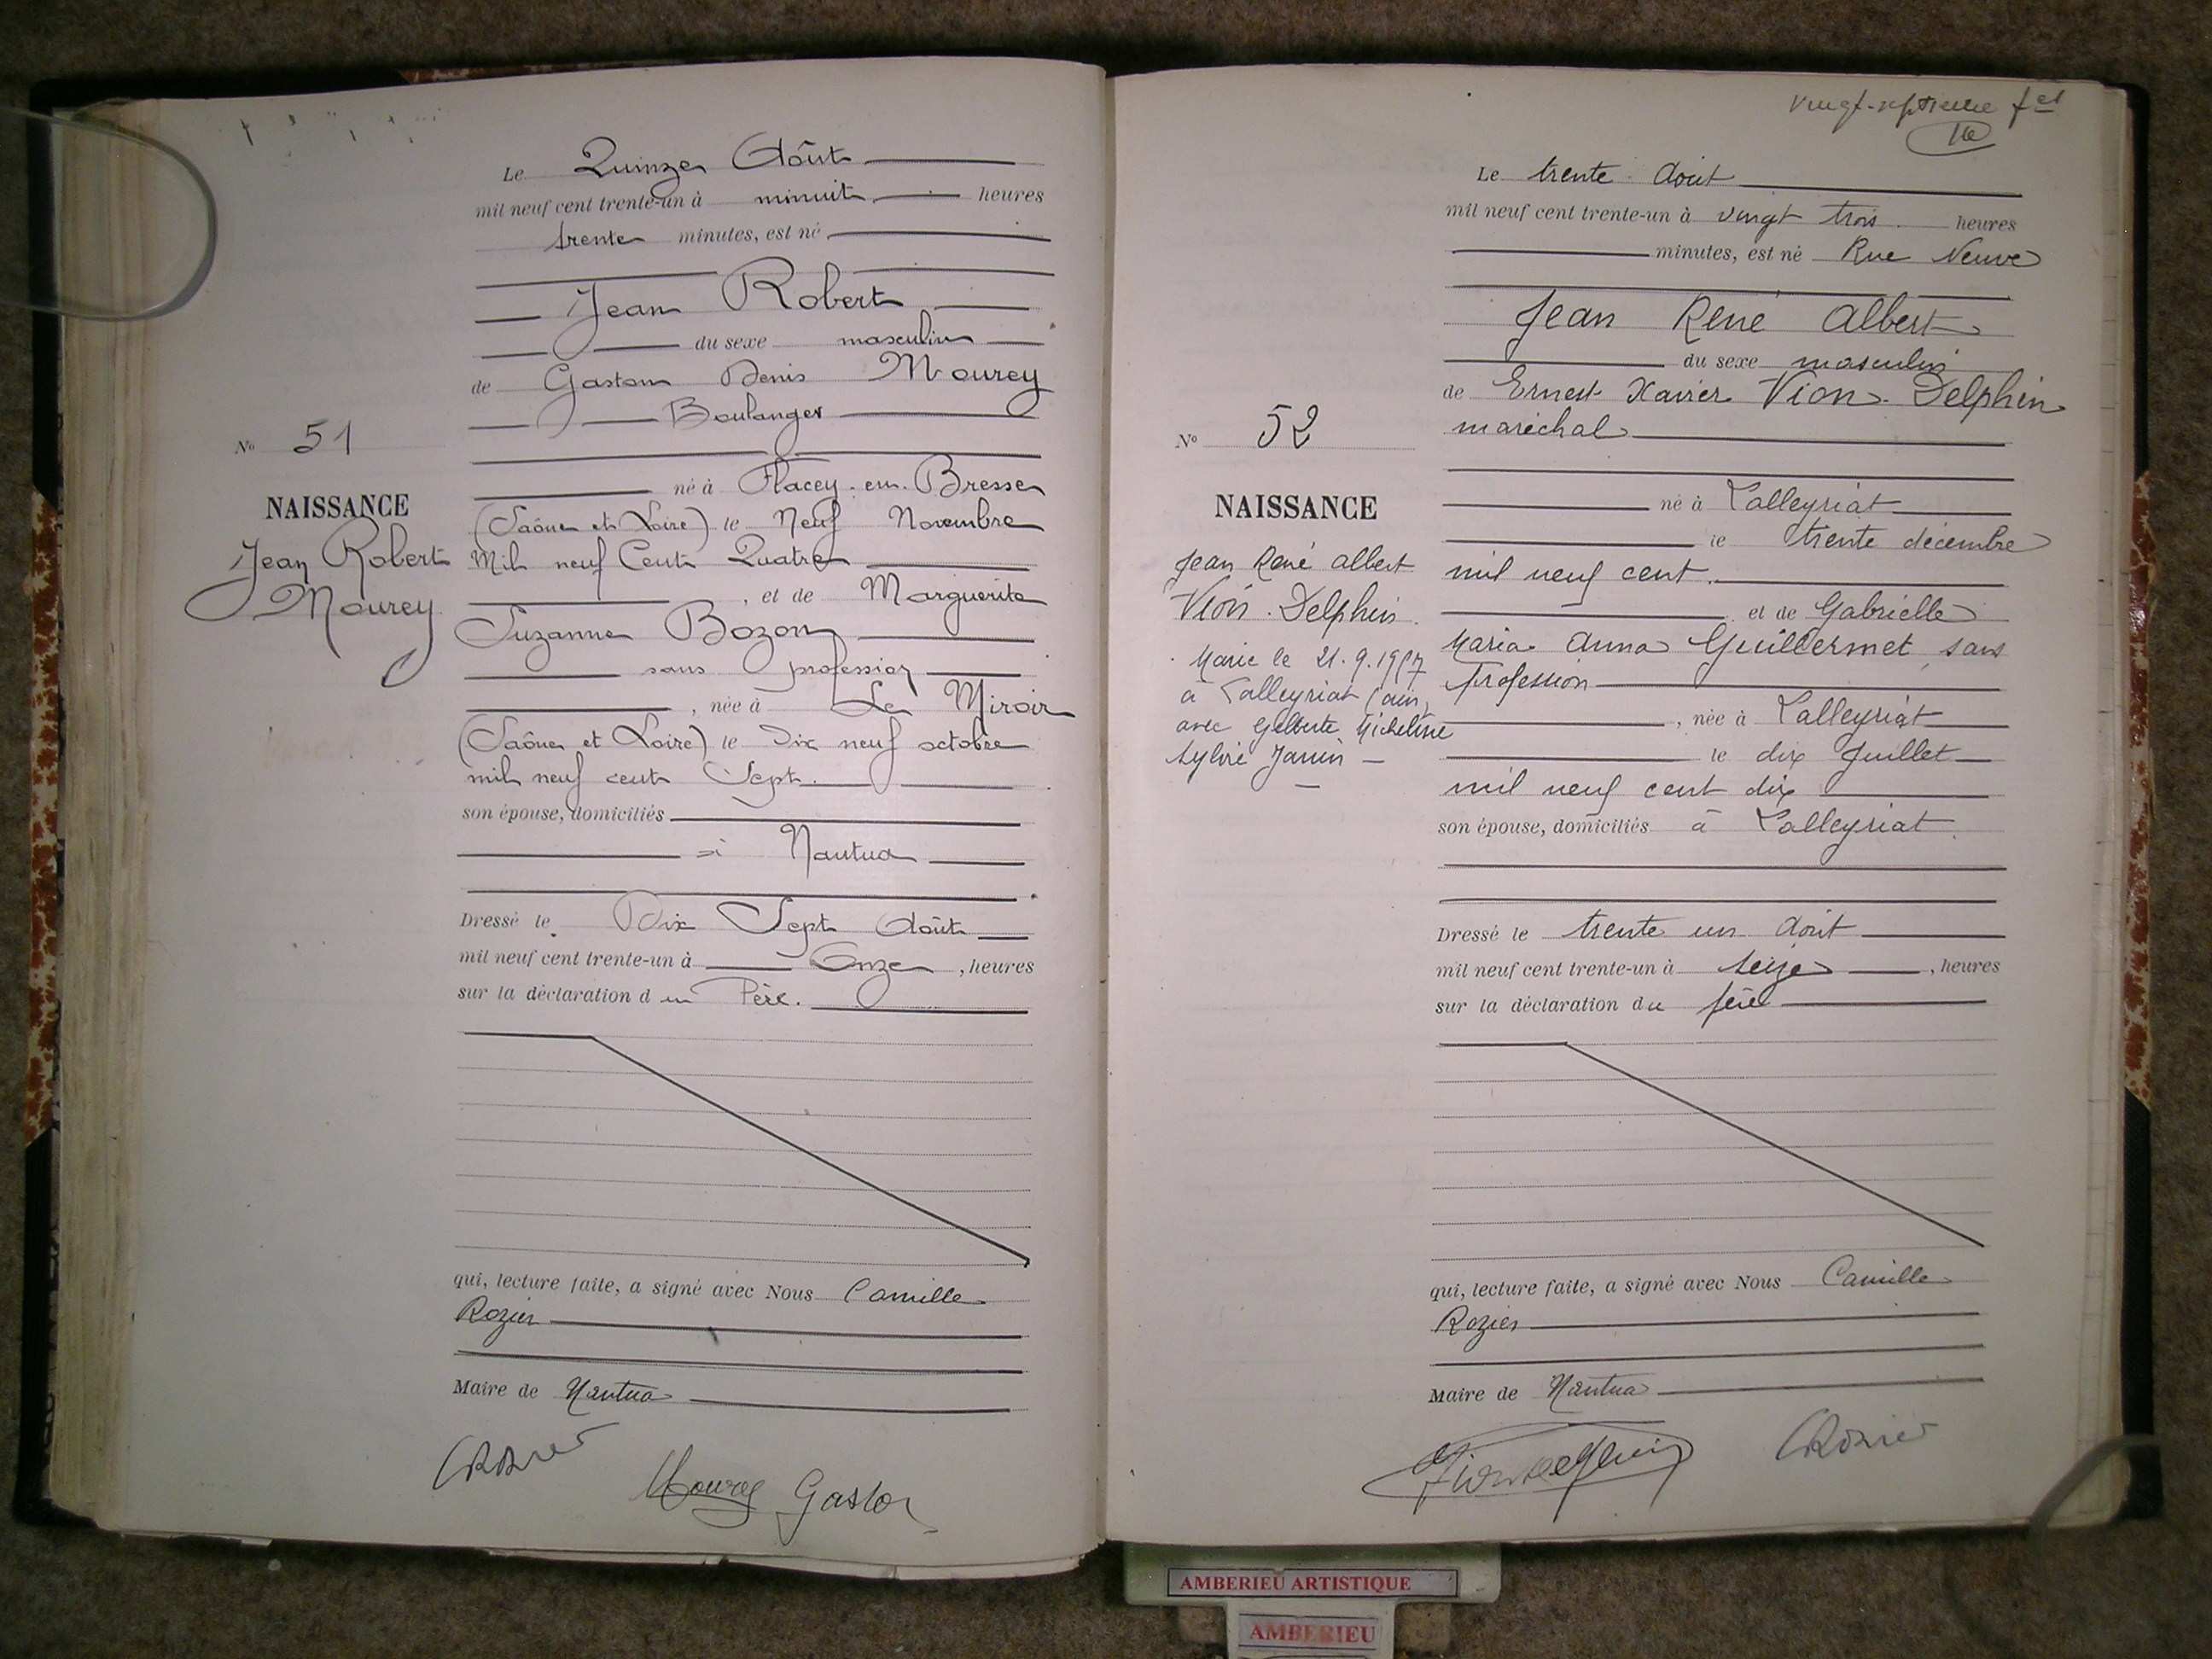 Le Quinze Août
mil neuf cent trente-un à minuit heures
trente minutes, est né
Jean Robert
du sexe masculin
de Gaston Denis Mourey
Boulanger
né à Flacey-en-Bresse
(Saône et Loire) le Neuf Novembre
Mil neuf Cent Quatre
, et de Marguerite
Suzanne Bozon
sans profession
, née à Le Miroir
(Saône et Loire) le Dix neuf octobre
mil neuf cent Sept.
son épouse, domiciliés
à Nantua
Dressé le Dix Sept Août
mil neuf cent trente-un à Onze , heures
sur la déclaration du Père.
qui, lecture faite, a signé avec Nous Camille
Rozier
Maire de Nantua
CRozier
Mourey Gaston
No 51
NAISSANCE
Jean Robert
Mourey
Vingt-septième fet
Le trente Août
mil neuf cent trente-un à vingt trois heures
minutes, est né Rue Neuve
Jean René Albert
du sexe masculin
de Ernest Xavier Vion-Delphin
maréchal
né à Lalleyriat
le trente décembre
mil neuf cent
et de Gabrielle
Maria Anna Guillermet, sans
profession
, née à Lalleyriat
le dix Juillet
mil neuf cent dix
son épouse, domiciliés à Lalleyriat
Dressé le trente un Août
mil neuf cent trente-un à seize , heures
sur la déclaration du père
qui, lecture faite, a signé avec Nous Camille
Rozier
Maire de Nantua
Viondelphin
CRozier
No 52
NAISSANCE
Jean René Albert
Vion-Delphin
Marié le 21.9.1957
à Lalleyriat (Ain)
avec Gilberte Micheline
Sylvie Janin
AMBERIEU ARTISTIQUE
AMBERIEU